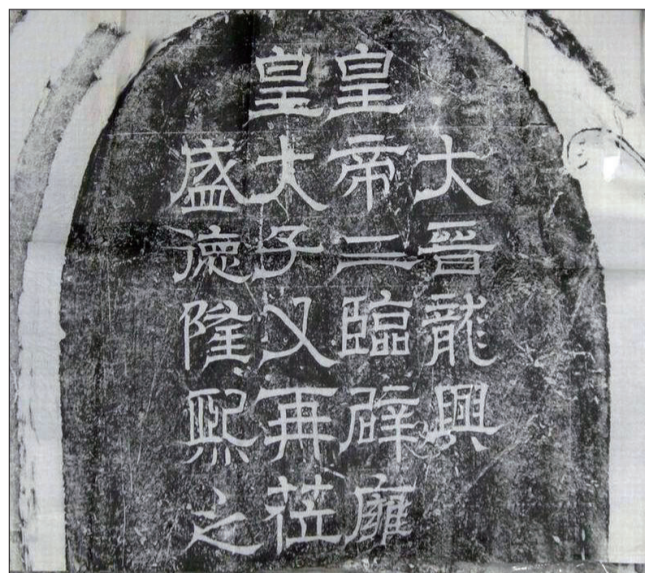 大晉龍興
皇帝二臨辟廱
皇大子又再莅
盛德隆熙之